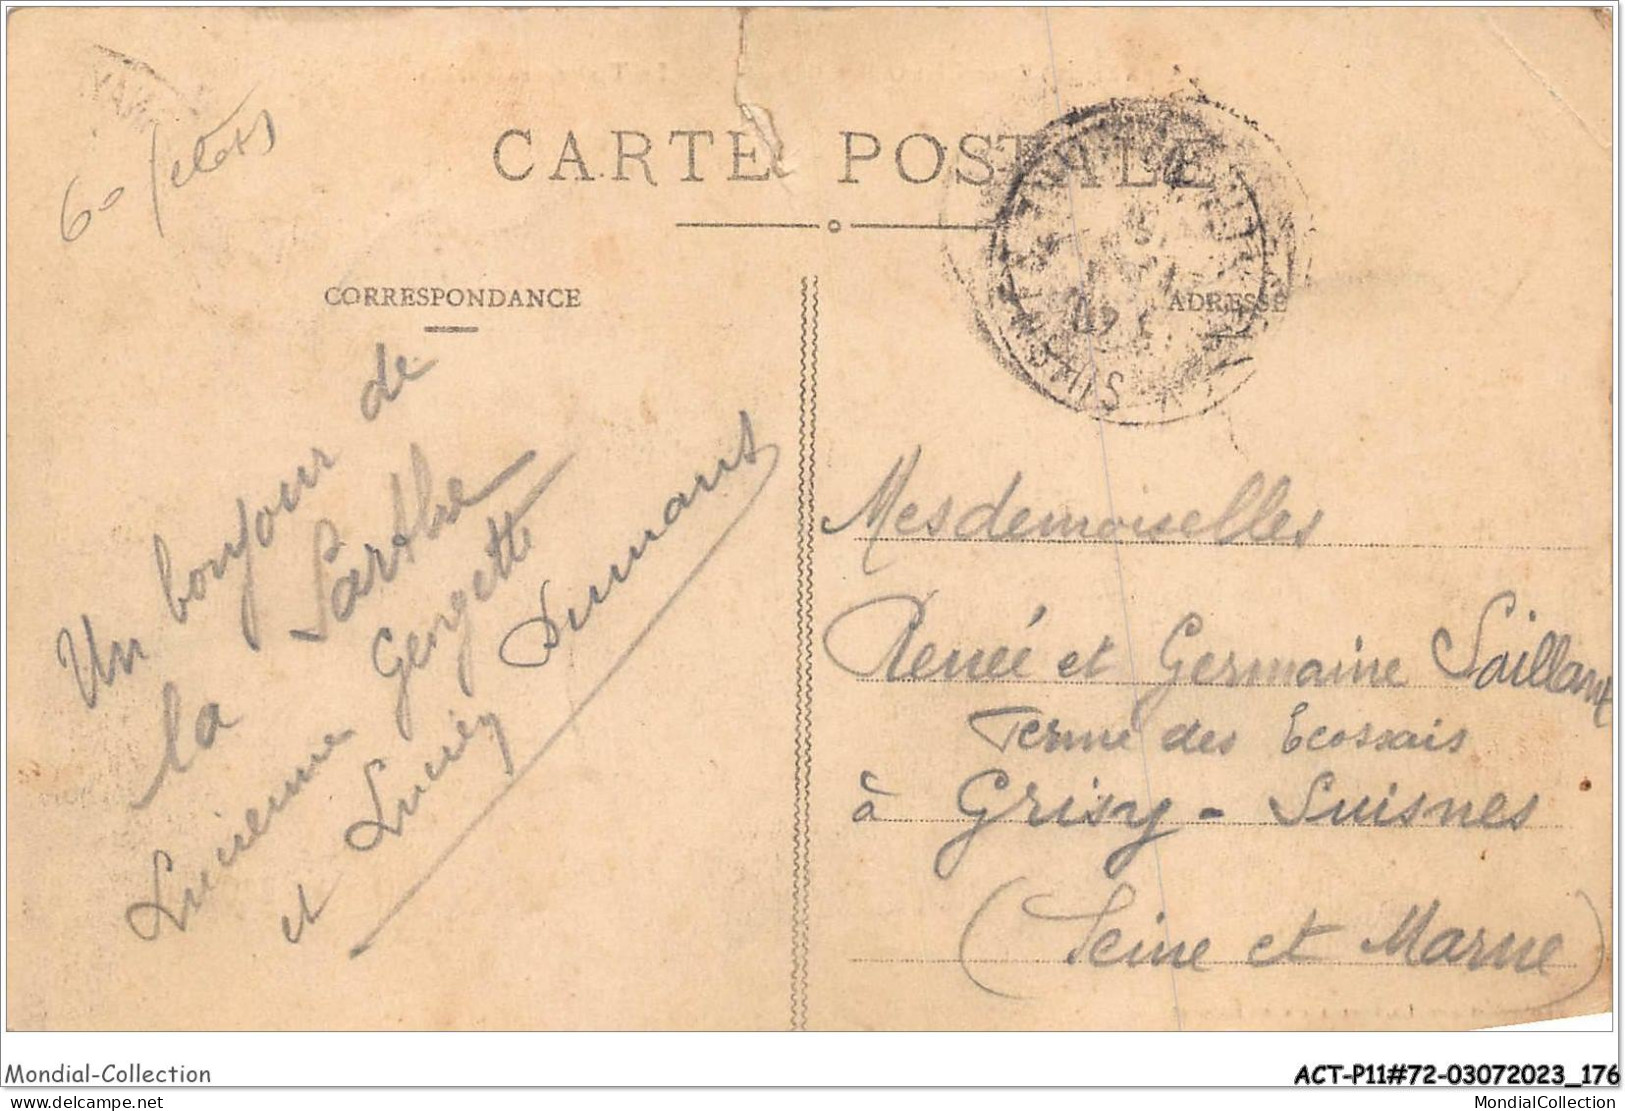 CARTE POSTALE
CORRESPONDANCE
ADRESSE
Un bonjour de
la Sarthe
Lucienne Georgette
et Lucien Dumant
Mesdemoiselles
Renée et Germaine Saillant
Ferme des Ecossais
à Grisy - Suisnes
(Seine et Marne)
Mondial-Collection
ACT-P11#72-03072023_176
delcampe.net
MondialCollection